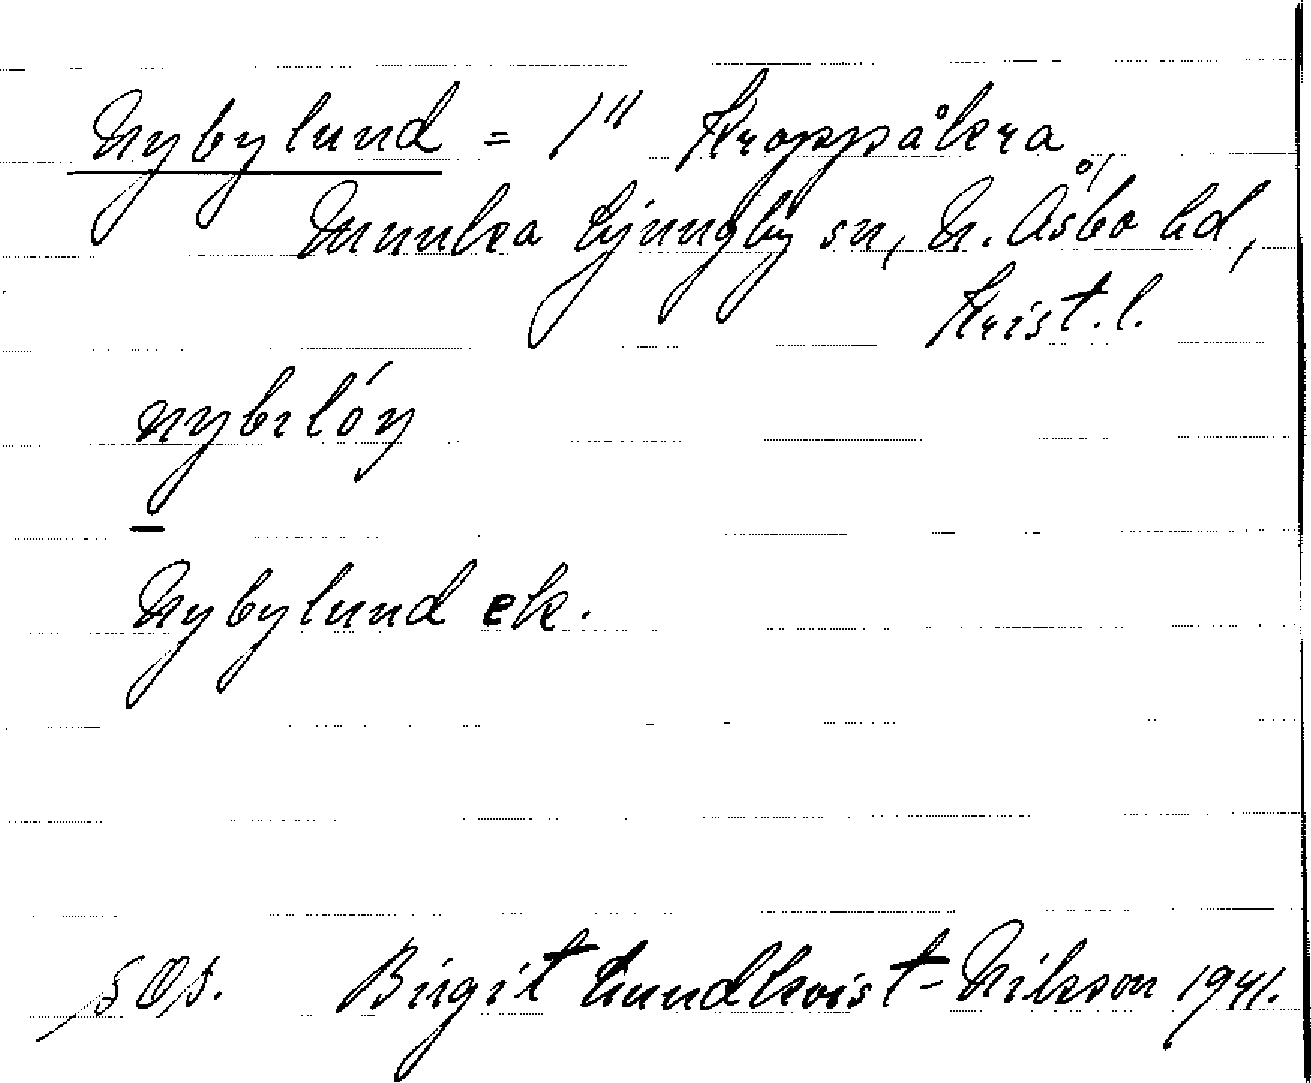 Nybylund = 1" Kroppåkra,
Munka Ljungby sn, N. Åsbo hd,
Krist. l.
nybɩlóŋ
Nybylund ek.
SOS. Birgit Lundkvist-Nilsson 1941.